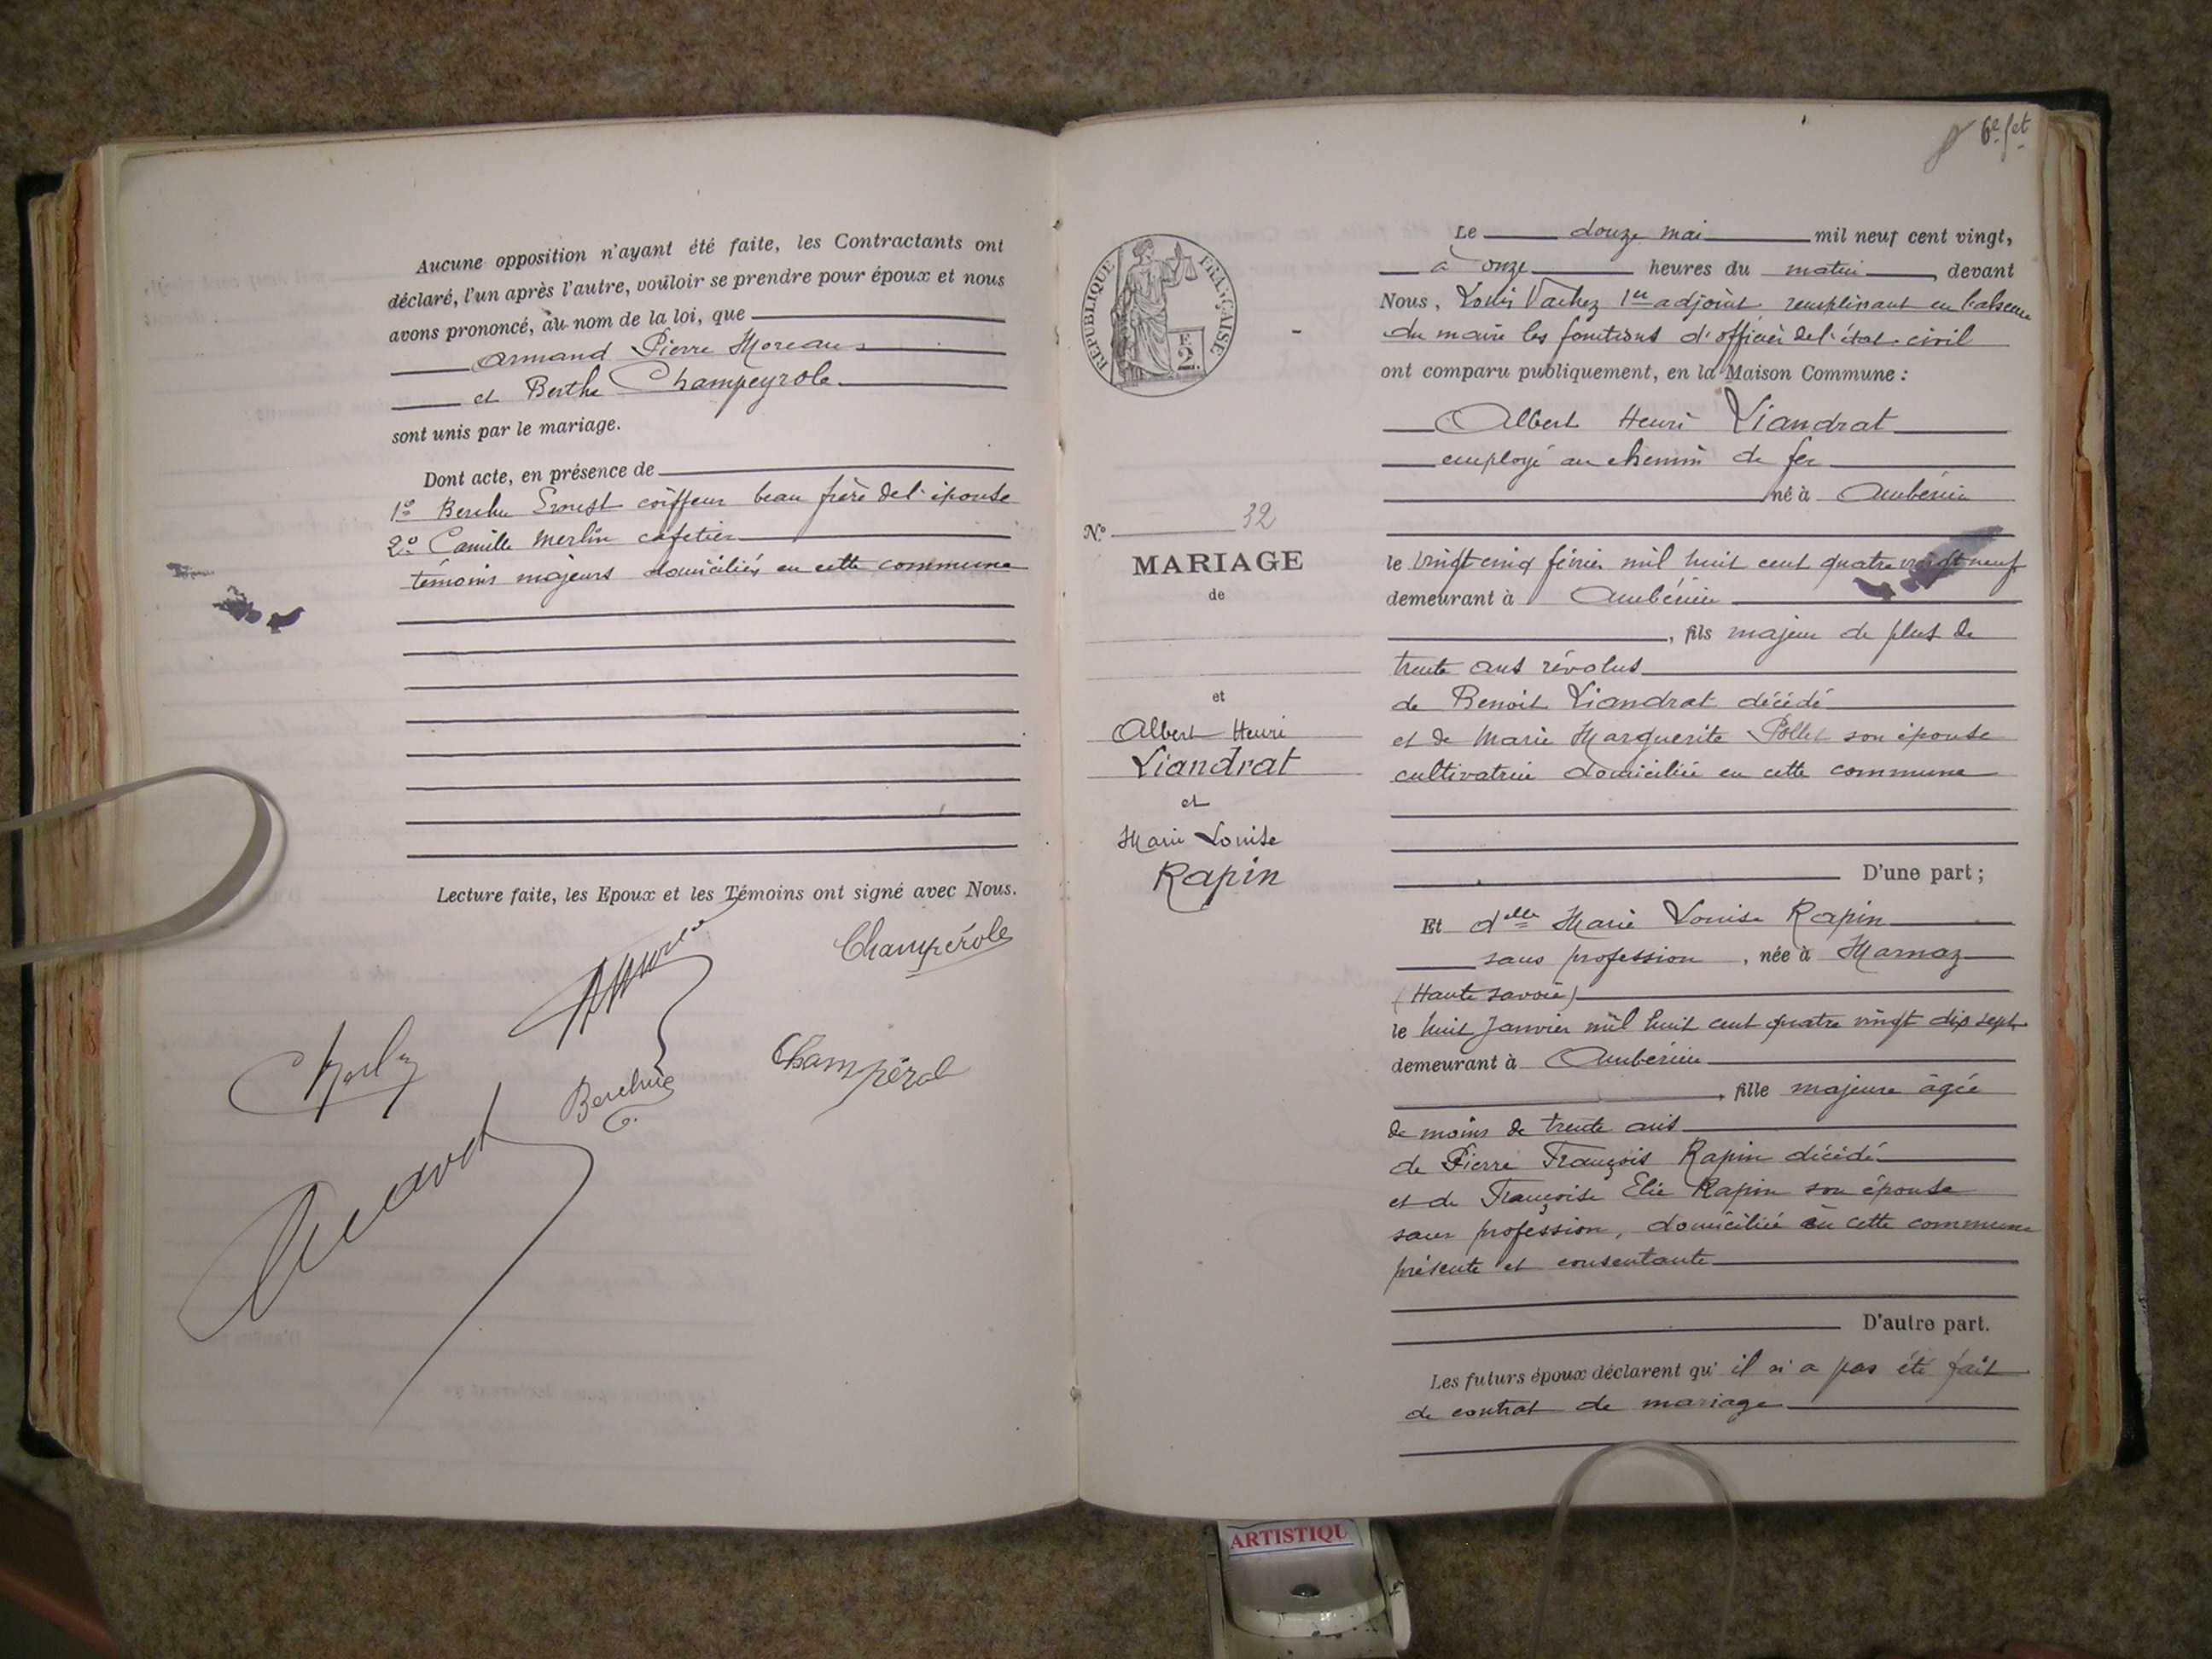 Aucune opposition n'ayant été faite, les Contractants ont
déclaré, l'un après l'autre, vouloir se prendre pour époux et nous
avons prononcé, au nom de la loi, que
Armand Pierre Moreau
et Berthe Champeyrole
sont unis par le mariage.
Dont acte, en présence de
1º Ernest coiffeur beau frère de l'épouse
2º Camille Merlin cafetier
témoins majeurs domiciliés en cette commune
Lecture faite, les Epoux et les Témoins ont signé avec Nous.
Champérole
Champérol
6e fet
REPUBLIQUE FRANÇAISE
E
2.
Nº 32
MARIAGE
de
et
Albert Henri
Liandrat
et
Marie Louise
Rapin
Le douze mai mil neuf cent vingt,
à onze heures du matin, devant
Nous, Louis Vachez 1er adjoint remplissant en l'absence
du maire les fonctions d'officier de l'état-civil
ont comparu publiquement, en la Maison Commune :
Albert Henri Liandrat
employé au chemin de fer
né à Ambérieu
le vingt cinq février mil huit cent quatre vingt neuf
demeurant à Ambérieu
, fils majeur de plus de
trente ans révolus
de Benoit Liandrat décédé
et de Marie Marguerite Pollet son épouse
cultivatrice domiciliée en cette commune
D'une part ;
Et delle Marie Louise Rapin
sans profession, née à Marnaz
(Haute Savoie)
le huit Janvier mil huit cent quatre vingt dix sept
demeurant à Ambérieu
, fille majeure âgée
de moins de trente ans
de Pierre François Rapin décédé
et de Françoise Elie Rapin son épouse
sans profession, domiciliée en cette commune
présente et consentante
D'autre part.
Les futurs époux déclarent qu'il n'a pas été fait
de contrat de mariage
ARTISTIQU